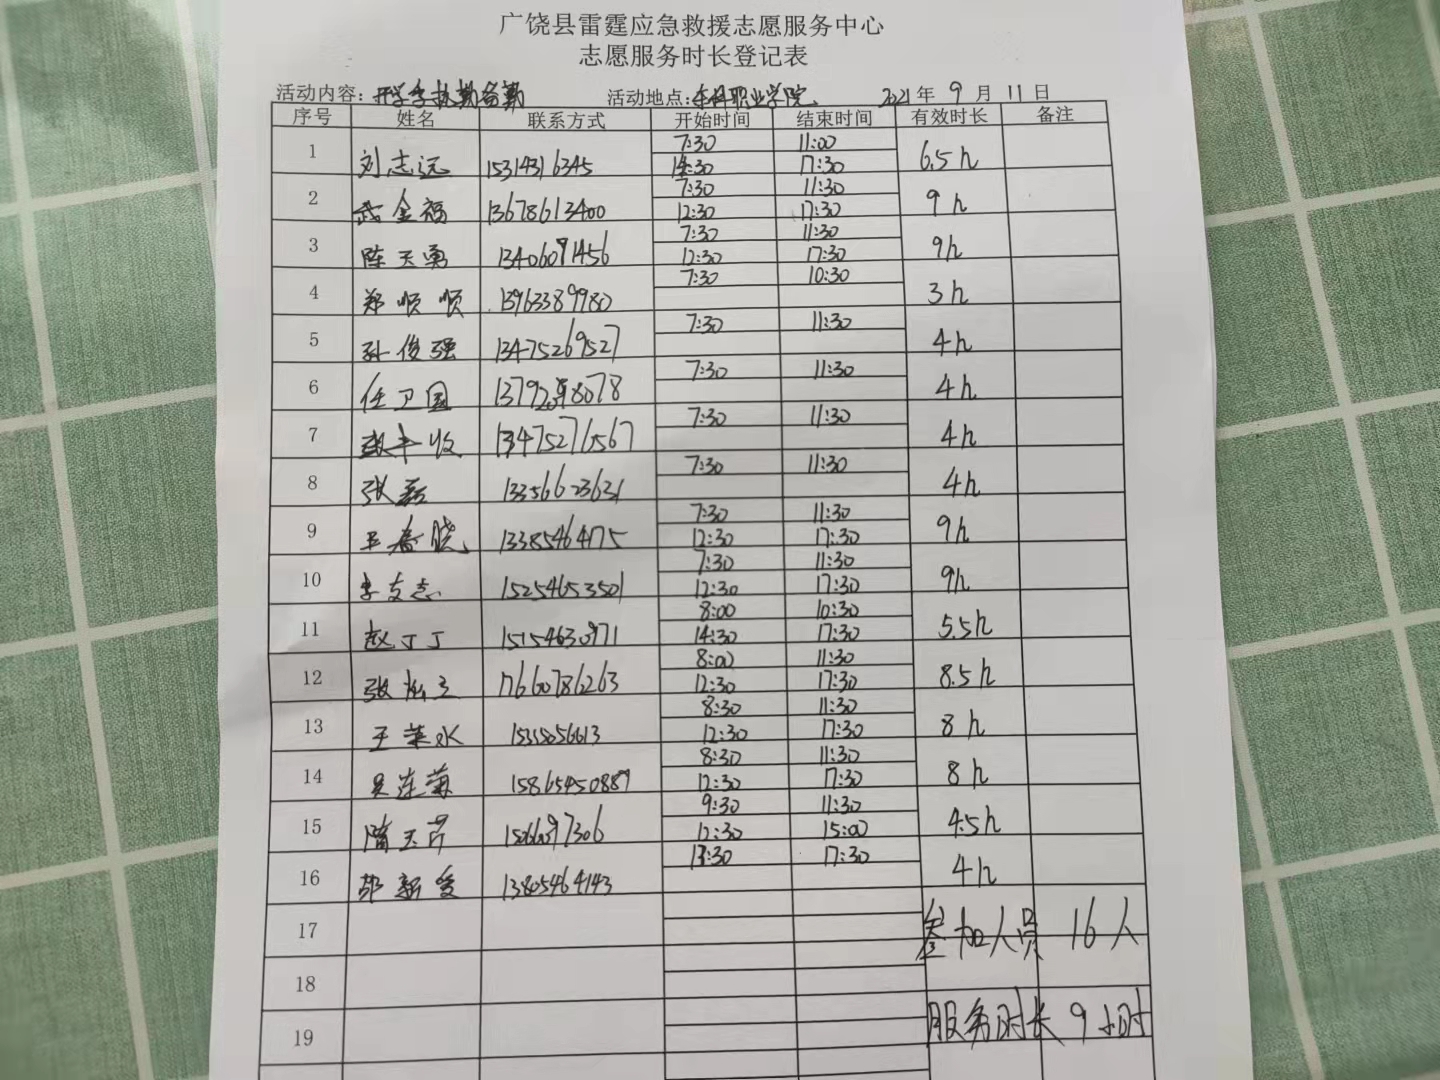 广饶县雷霆应急救援志愿服务中心
志愿服务时长登记表
活动内容：开学季执勤备勤 活动地点：本科职业学院 2021年 9月 11日
序号 姓名 联系方式 开始时间 结束时间 有效时长 备注
1 刘志远 15314316345 7:30 11:00 14:30 17:30 6.5h
2 武金福 13678613400 7:30 11:30 12:30 17:30 9h
3 陈天勇 13406091456 7:30 11:30 12:30 17:30 9h
4 郑顺顺 13963389980 7:30 10:30 3h
5 孙俊强 13475269527 7:30 11:30 4h
6 任卫国 7:30 11:30 4h
7 丰收 13475276567 7:30 11:30 4h
8 张磊 13356623631 7:30 11:30 4h
9 王春晓 13385464175 7:30 11:30 12:30 17:30 9h
10 李友志 15254653501 7:30 11:30 12:30 17:30 9h
11 赵丁丁 15154630971 8:00 10:30 14:30 17:30 5.5h
12 张 17660786263 8:00 11:30 12:30 17:30 8.5h
13 王 水 8:30 11:30 12:30 17:30 8h
14 吴连菊 15865450889 8:30 11:30 12:30 17:30 8h
15 隋玉芹 15066097306 9:30 11:30 12:30 15:00 4.5h
16 新爱 13805464143 13:30 17:30 4h
17 参加人员 16人
18
19 服务时长 9小时